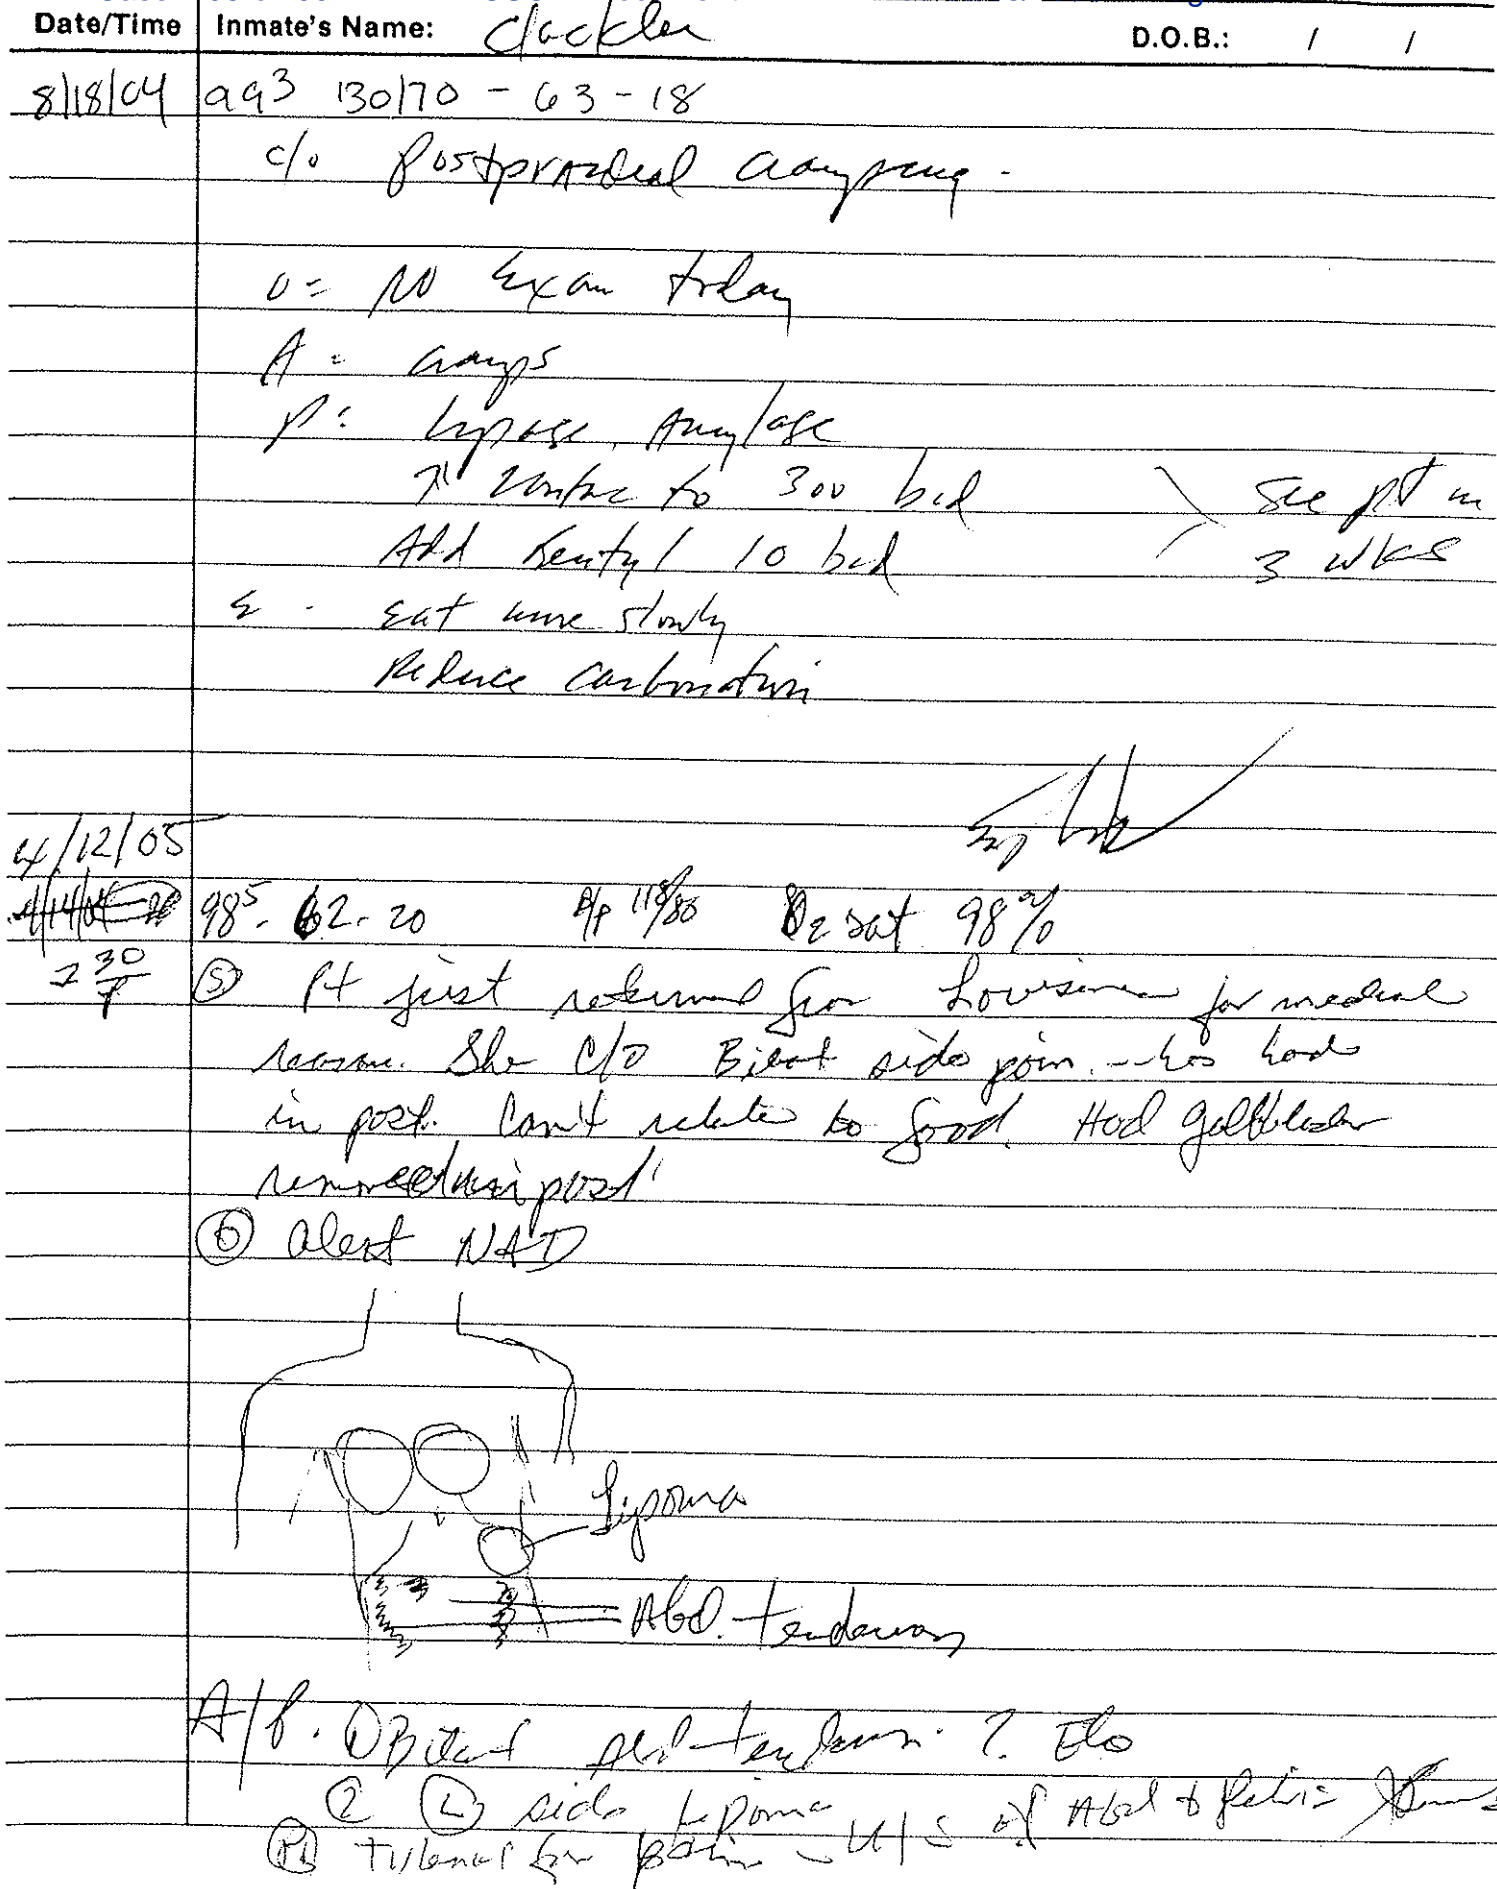 Date/Time Inmate's Name: Clackler D.O.B.: / /
8/18/04 993 130/70 - 63 - 18
c/o postprandial cramping -
O = No Exam today
A = cramps
P: Lipase, Amylase
↑ Zantac to 300 bid
See pt in
Add Bentyl 10 bid
3 wks
E - Eat more slowly
Reduce carbonation
4/12/05
98⁵ - 62 - 20 B/P 118/80 O2 sat 98%
2 30/P Ⓢ Pt just returned from Louisiana for medical
reason. She c/o Bilat side pain - has had
in past. Can't relate to food. Had gallbladder
removed in past
Ⓞ alert NAD
Lipoma
Abd. tenderness
A/P. ① Bilat Abd tenderness ?
② Ⓛ side Lipoma
Tylenol for pain - U/S of Abd & Pelvis